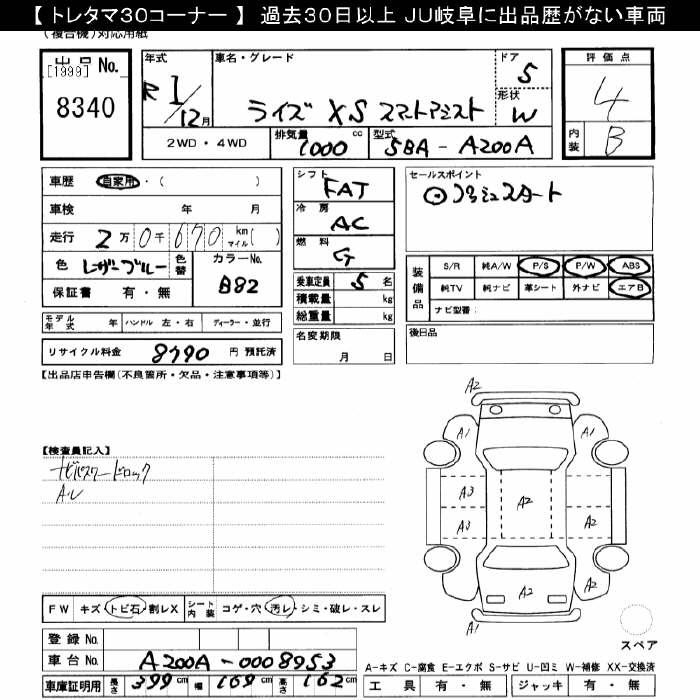 【 トレタマ30コーナー 】 過去30日以上 JU岐阜に出品歴がない車両
(複合機)対応用紙
出品 No.
[1999]
8340
年式
R 1/12月
車名・グレード
ライズ XS スマートアシスト
ドア
5
形状
W
2WD・4WD
排気量 1000 cc
型式 5BA - A200A
評価点
4
内装 B
車歴 自家用・( )
車検 年 月
走行 2万0千670 km マイル( )
色 レーザーブルー
色替
カラーNo. B82
保証書 有・無
シフト FAT
冷房 AC
燃料 G
乗車定員 5 名
積載量 kg
総重量 kg
名変期限
月 日
セールスポイント
プッシュスタート
装備品
S/R 純A/W P/S P/W ABS
純TV 純ナビ 革シート 外ナビ エアB
ナビ型番:
後日品
モデル年式 年 ハンドル 左・右 ディーラー・並行
リサイクル料金 8790 円 預託済
【出品店申告欄(不良箇所・欠品・注意事項等)】
【検査員記入】
ナビパスワードロック
A・U
A2
A1 A1
A3 A2
A3 A2
A2
A1
スペア
FW キズ・トビ石・割レX シート内装 コゲ・穴・汚レ・シミ・破レ・スレ
登録 No.
車台 No. A200A-0008953
車庫証明用 長さ 399 cm 幅 169 cm 高さ 162 cm
A-キズ C-腐食 E-エクボ S-サビ U-凹ミ W-補修 XX-交換済
工具 有・無 ジャッキ 有・無